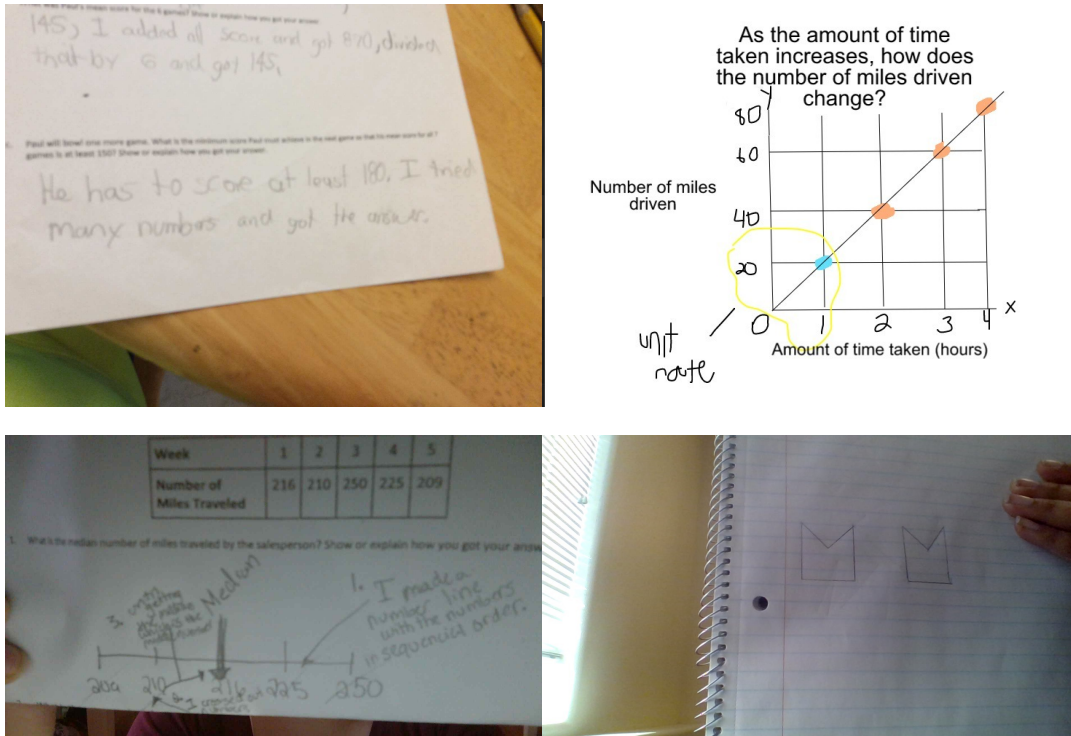 was Paul's mean score for the 6 games? Show or explain how you got your answer.
145, I added all score and got 870, divided
that by 6 and got 145.
c. Paul will bowl one more game. What is the minimum score Paul must achieve in the next game so that his mean score for all 7
games is at least 150? Show or explain how you got your answer.
He has to score at least 180. I tried
many numbers and got the answer.
As the amount of time
taken increases, how does
the number of miles driven
change?
y
80
60
Number of miles
driven
40
20
0 1 2 3 4 x
unit
rate
Amount of time taken (hours)
Week 1 2 3 4 5
Number of
Miles Traveled 216 210 250 225 209
1. What is the median number of miles traveled by the salesperson? Show or explain how you got your answ
Median
1. I made a
number line
with the numbers
in sequencial order.
3. until
getting
number
209 210 216 225 250
2. I crossed out
numbers